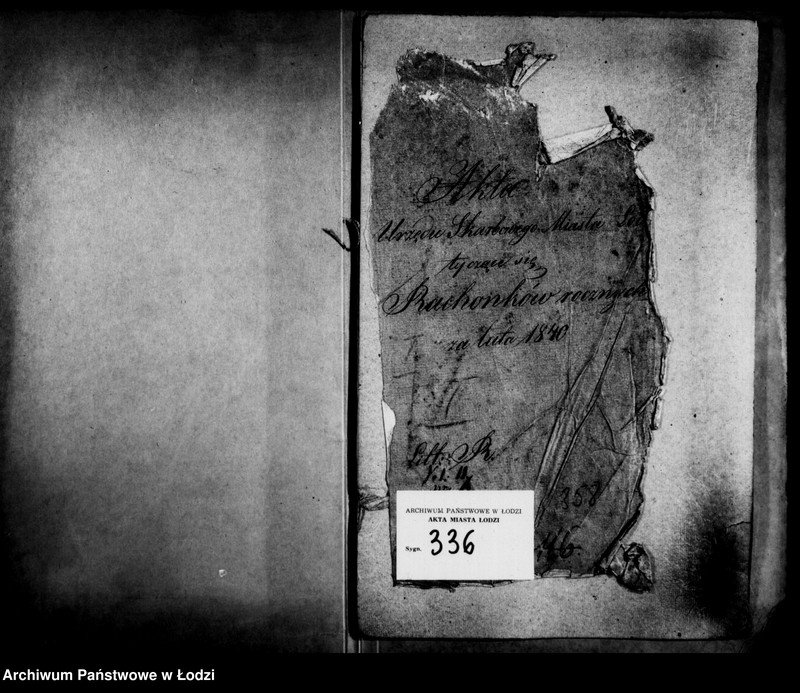 Akta
Urzędu Skarbowego Miasta
tyczące się
Rachonków rocznych
za lata 1840
Litt: R.
358
46.
ARCHIWUM PAŃSTWOWE W ŁODZI
AKTA MIASTA ŁODZI
Sygn. 336
Archiwum Państwowe w Łodzi